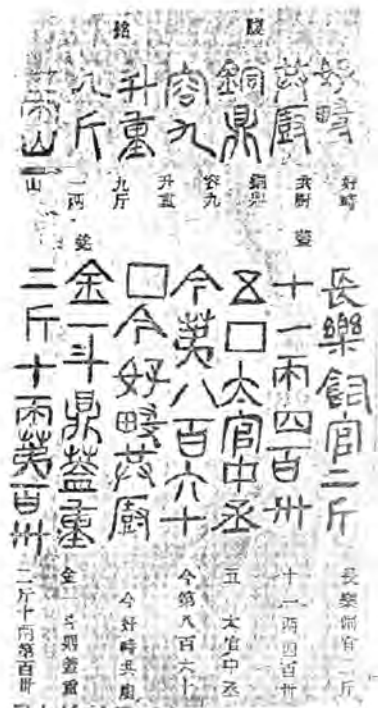 腹銘
好畤
共廚
銅鼎
容九
升重
九斤
一兩山
好畤
共廚
銅鼎
容九
升重
九斤
一兩
山
蓋銘
長樂飤官二斤
十一兩四百卅
五□太官中丞
今第八百六十
□今好畤共廚
金一斗鼎蓋重
二斤十兩第百卅
長樂飤官二斤
十一兩四百卅
五 太官中丞
今第八百六十
今好畤共廚
金一斗鼎蓋重
二斤十兩第百卅